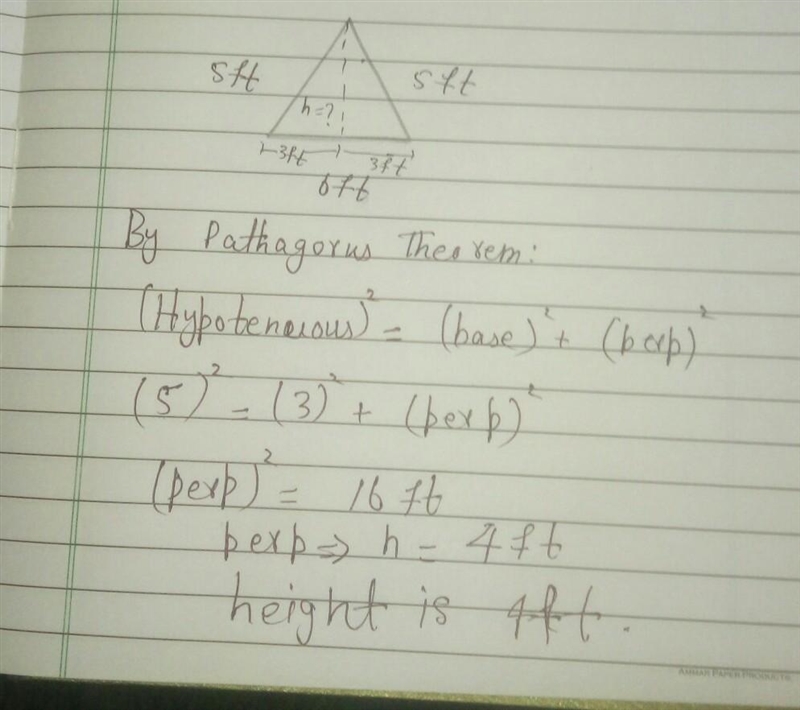 5ft 5ft
h=?
3ft 3ft
6ft
By Pathagorus Theorem:
(Hypotenuous)² = (base)² + (perp)²
(5)² = (3)² + (perp)²
(perp)² = 16 ft
perp ⇒ h = 4 ft
height is 4ft.
AMMAR PAPER PRODUCTS